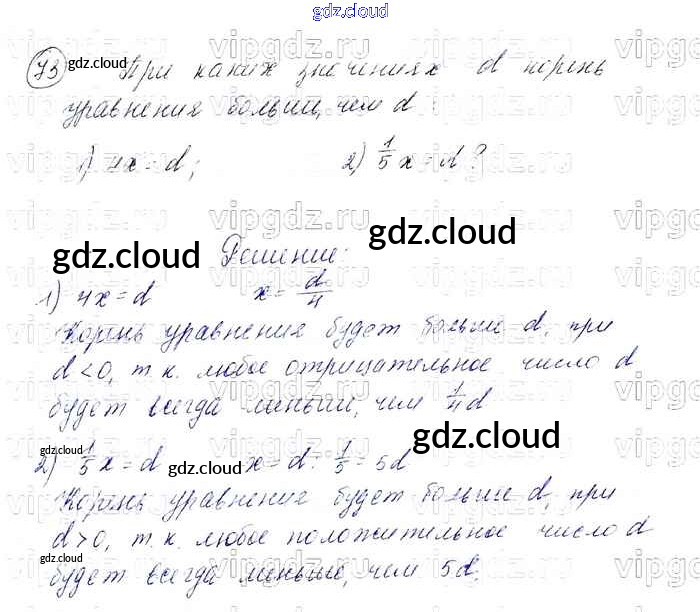 gdz.cloud
73 При каких значениях d корень
уравнения больший, чем d:
1) 4x = d; 2) 1/5 x = d?
Решение:
1) 4x = d x = d/4
Корень уравнения будет больше d, при
d < 0, т.к. любое отрицательное число d
будет всегда меньший, чем 1/4 d
2) 1/5 x = d x = d : 1/5 = 5d
Корень уравнения будет больше d, при
d > 0, т.к. любое положительное число d
будет всегда меньше, чем 5d.
gdz.cloud
gdz.cloud
gdz.cloud
gdz.cloud
gdz.cloud
gdz.cloud
gdz.cloud
vipgdz.ru